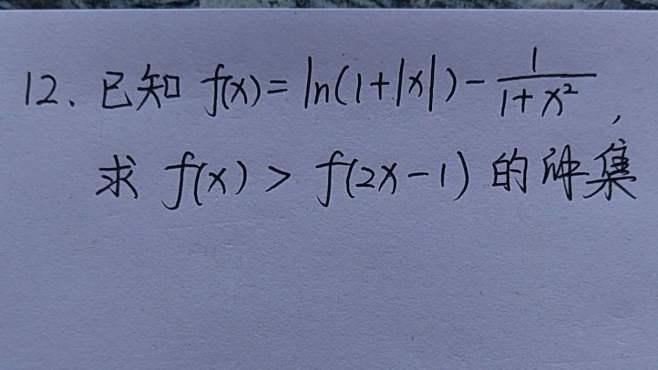 12、已知 f(x)=ln(1+|x|)-\frac{1}{1+x^2},
求 f(x)>f(2x-1)的解集